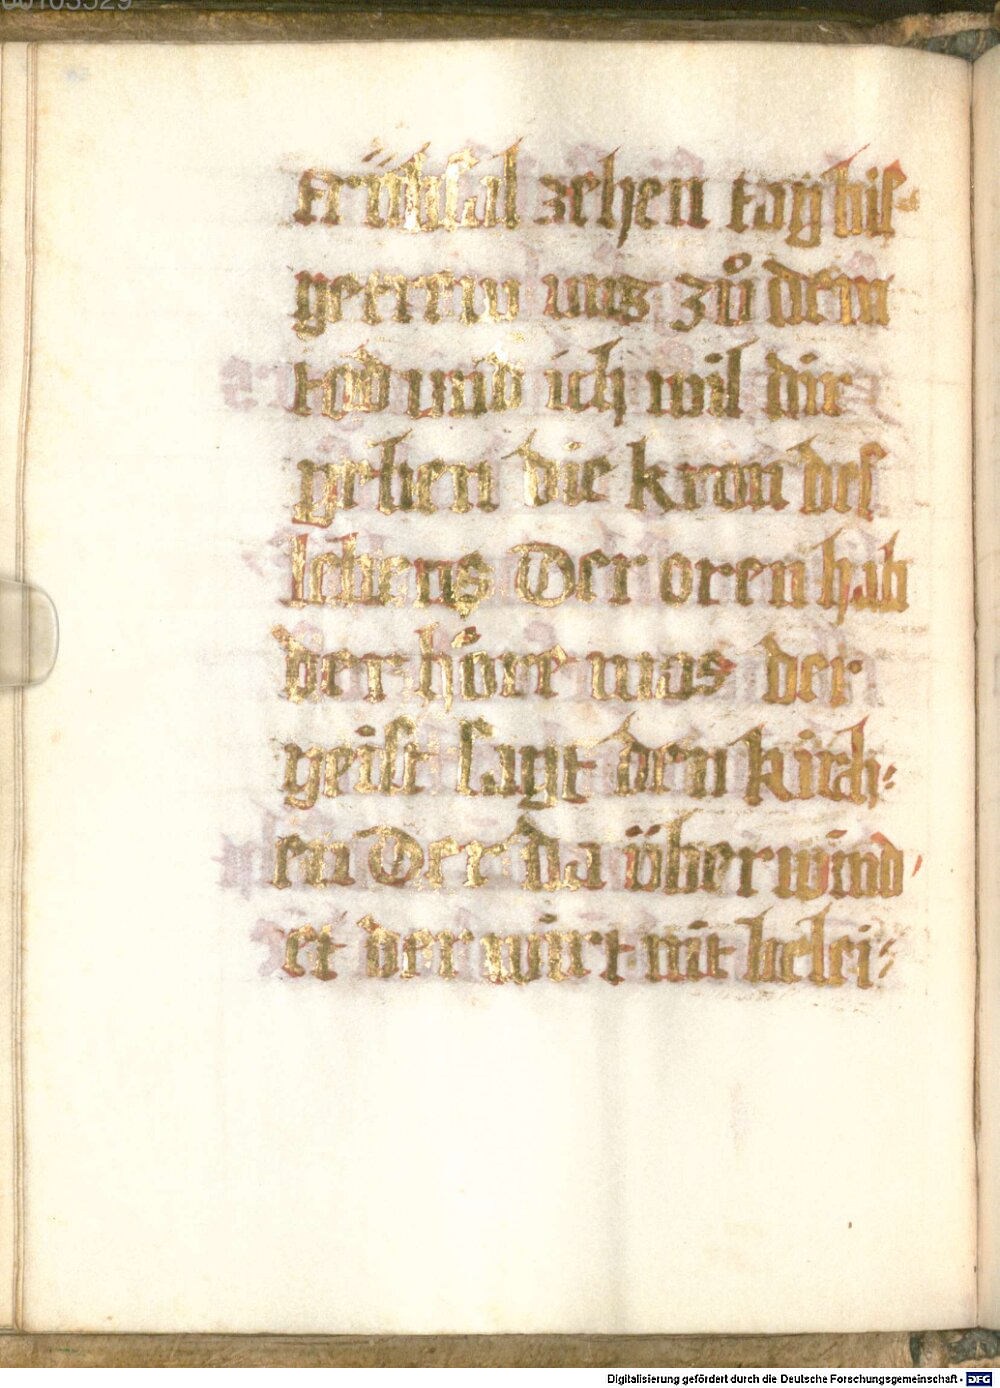 00103529
trübsal zehen tag bis
getrew uns zů dem
tod und ich wil dir
geben die kron des
lebens Der oren hab
der höre was der
geist sagt den kirch-
en Der da überwind
et der wirt nit belei-
Digitalisierung gefördert durch die Deutsche Forschungsgemeinschaft - DFG